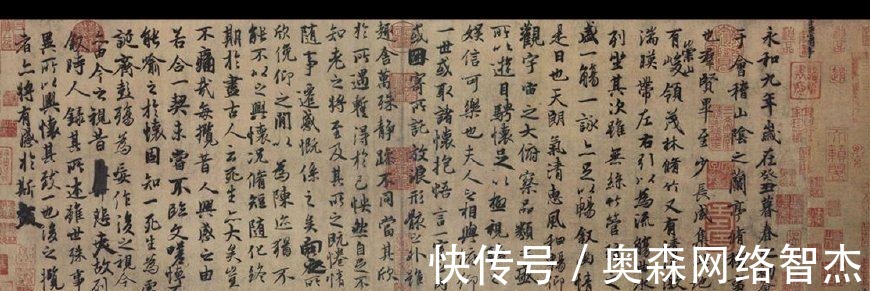 永和九年歲在癸丑暮春
于會稽山陰之蘭亭脩
也群賢畢至少長咸集
有崇山峻領茂林脩竹又有清
湍暎帶左右引以為流觴
列坐其次雖無絲竹管
盛一觴一詠亦足以暢敘幽
是日也天朗氣清惠風和暢仰
觀宇宙之大俯察品類
所以遊目騁懷足以極視
娛信可樂也夫人之相與
一世或取諸懷抱悟言一
或因寄所託放浪形骸之外雖
趣舍萬殊靜躁不同當其欣
於所遇暫得於己怏然自足不
知老之將至及其所之既惓情
隨事遷感慨係之矣向之所
欣俛仰之閒以為陳迹猶不
能不以之興懷況脩短隨化終
期於盡古人云死生亦大矣豈
不痛哉每攬昔人興感之由
若合一契未嘗不臨文嗟悼
能喻之於懷固知一死生為虛
誕齊彭殤為妄作後之視今
亦由今之視昔悲夫故列
敘時人錄其所述雖世殊事
異所以興懷其致一也後之攬
者亦將有感於斯文
快传号 / 奥森网络智杰